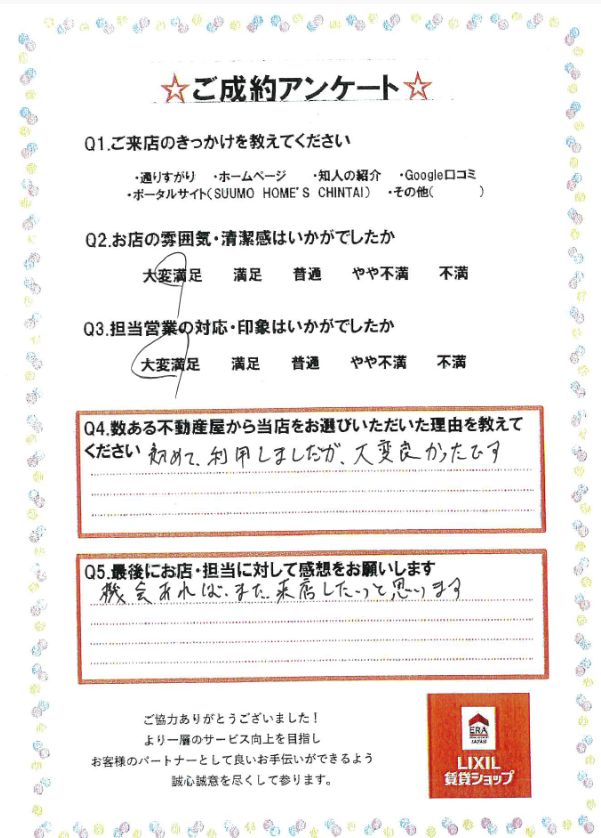 ☆ご成約アンケート☆
Q1.ご来店のきっかけを教えてください
・通りすがり ・ホームページ ・知人の紹介 ・Google口コミ
・ポータルサイト(SUUMO HOME'S CHINTAI) ・その他( )
Q2.お店の雰囲気・清潔感はいかがでしたか
大変満足 満足 普通 やや不満 不満
Q3.担当営業の対応・印象はいかがでしたか
大変満足 満足 普通 やや不満 不満
Q4.数ある不動産屋から当店をお選びいただいた理由を教えて
ください 初めて、利用しましたが、大変良かったです
Q5.最後にお店・担当に対して感想をお願いします
機会あれば、また、来店したいと思います
ご協力ありがとうございました！
より一層のサービス向上を目指し
お客様のパートナーとして良いお手伝いができるよう
誠心誠意を尽くして参ります。
ERA
JAPAN
LIXIL
賃貸ショップ